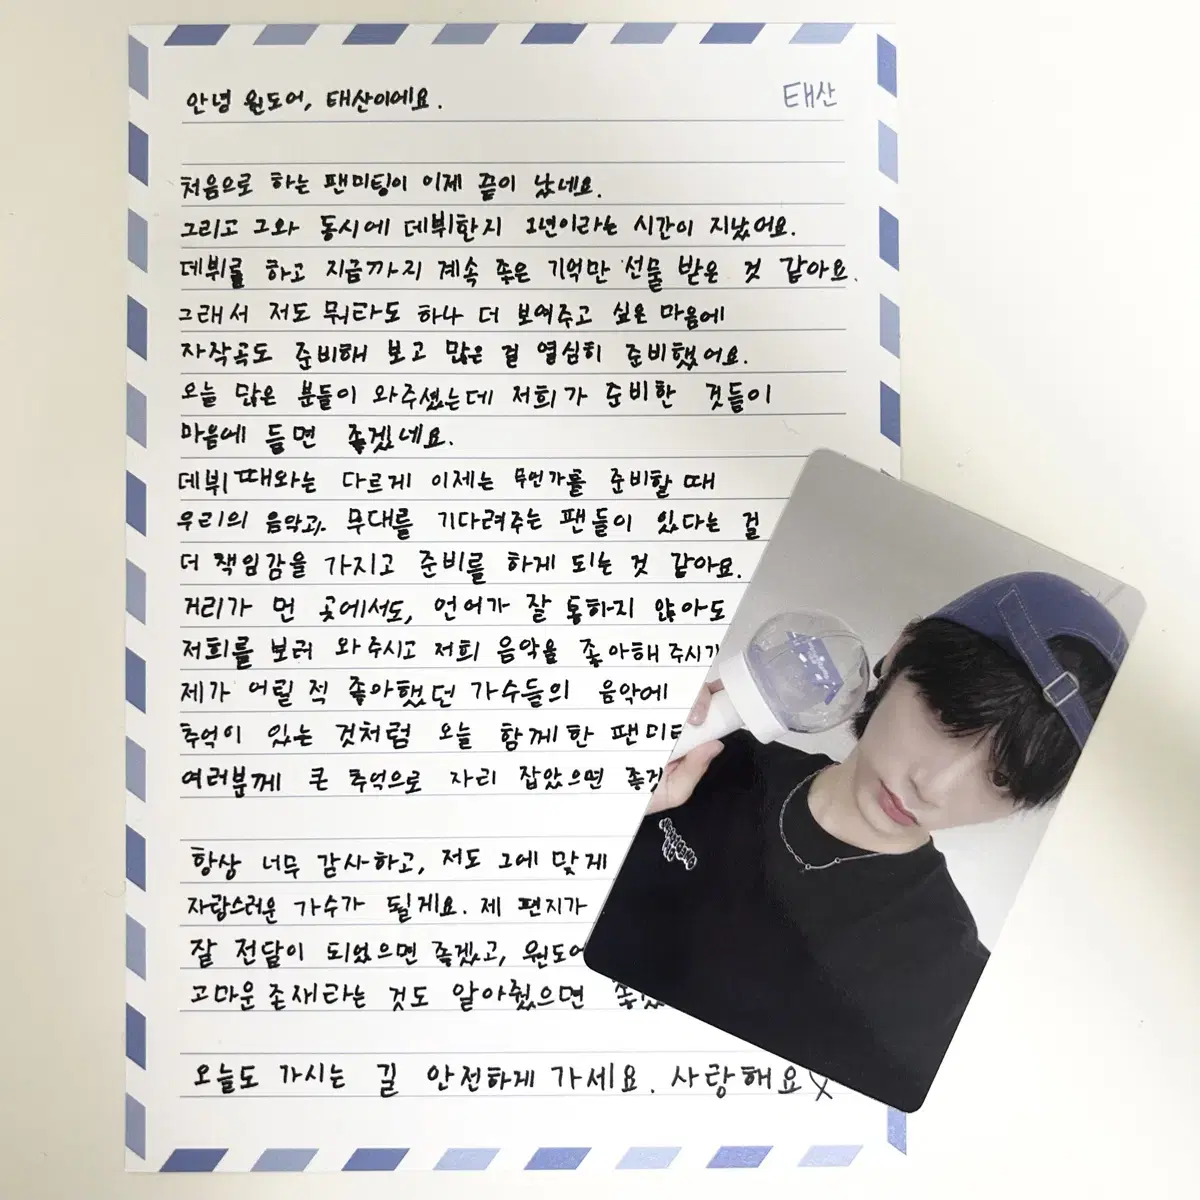 안녕 원도어, 태산이에요.
태산
처음으로 하는 팬미팅이 이제 끝이 났네요.
그리고 그와 동시에 데뷔한지 1년이라는 시간이 지났어요.
데뷔를 하고 지금까지 계속 좋은 기억만 선물 받은 것 같아요.
그래서 저도 뭐라도 하나 더 보여주고 싶은 마음에
자작곡도 준비해 보고 많은 걸 열심히 준비했어요.
오늘 많은 분들이 와주셨는데 저희가 준비한 것들이
마음에 들면 좋겠네요.
데뷔 때와는 다르게 이제는 무언가를 준비할 때
우리의 음악과, 무대를 기다려주는 팬들이 있다는 걸
더 책임감을 가지고 준비를 하게 되는 것 같아요.
거리가 먼 곳에서도, 언어가 잘 통하지 않아도
저희를 보러 와주시고 저희 음악을 좋아해 주시
제가 어릴 적 좋아했던 가수들의 음악에
추억이 있는 것처럼 오늘 함께한 팬미
여러분께 큰 추억으로 자리 잡았으면 좋겠
항상 너무 감사하고, 저도 그에 맞게
자랑스러운 가수가 될게요. 제 편지가
잘 전달이 되었으면 좋겠고, 원도어
고마운 존재라는 것도 알아줬으면 좋겠
오늘도 가시는 길 안전하게 가세요. 사랑해요